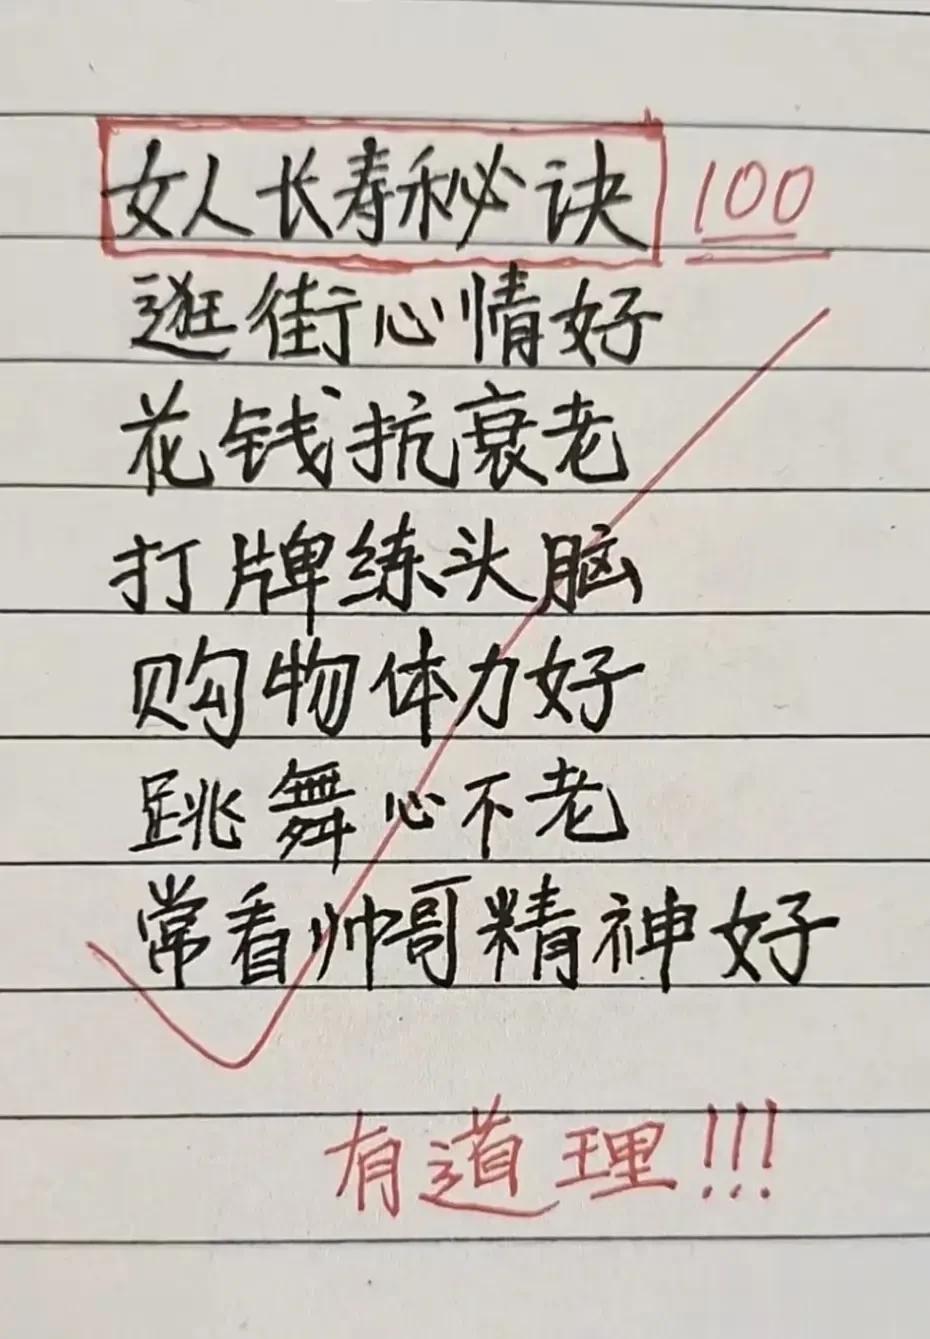 女人长寿秘诀 100
逛街心情好
花钱抗衰老
打牌练头脑
购物体力好
跳舞心不老
常看帅哥精神好
有道理!!!